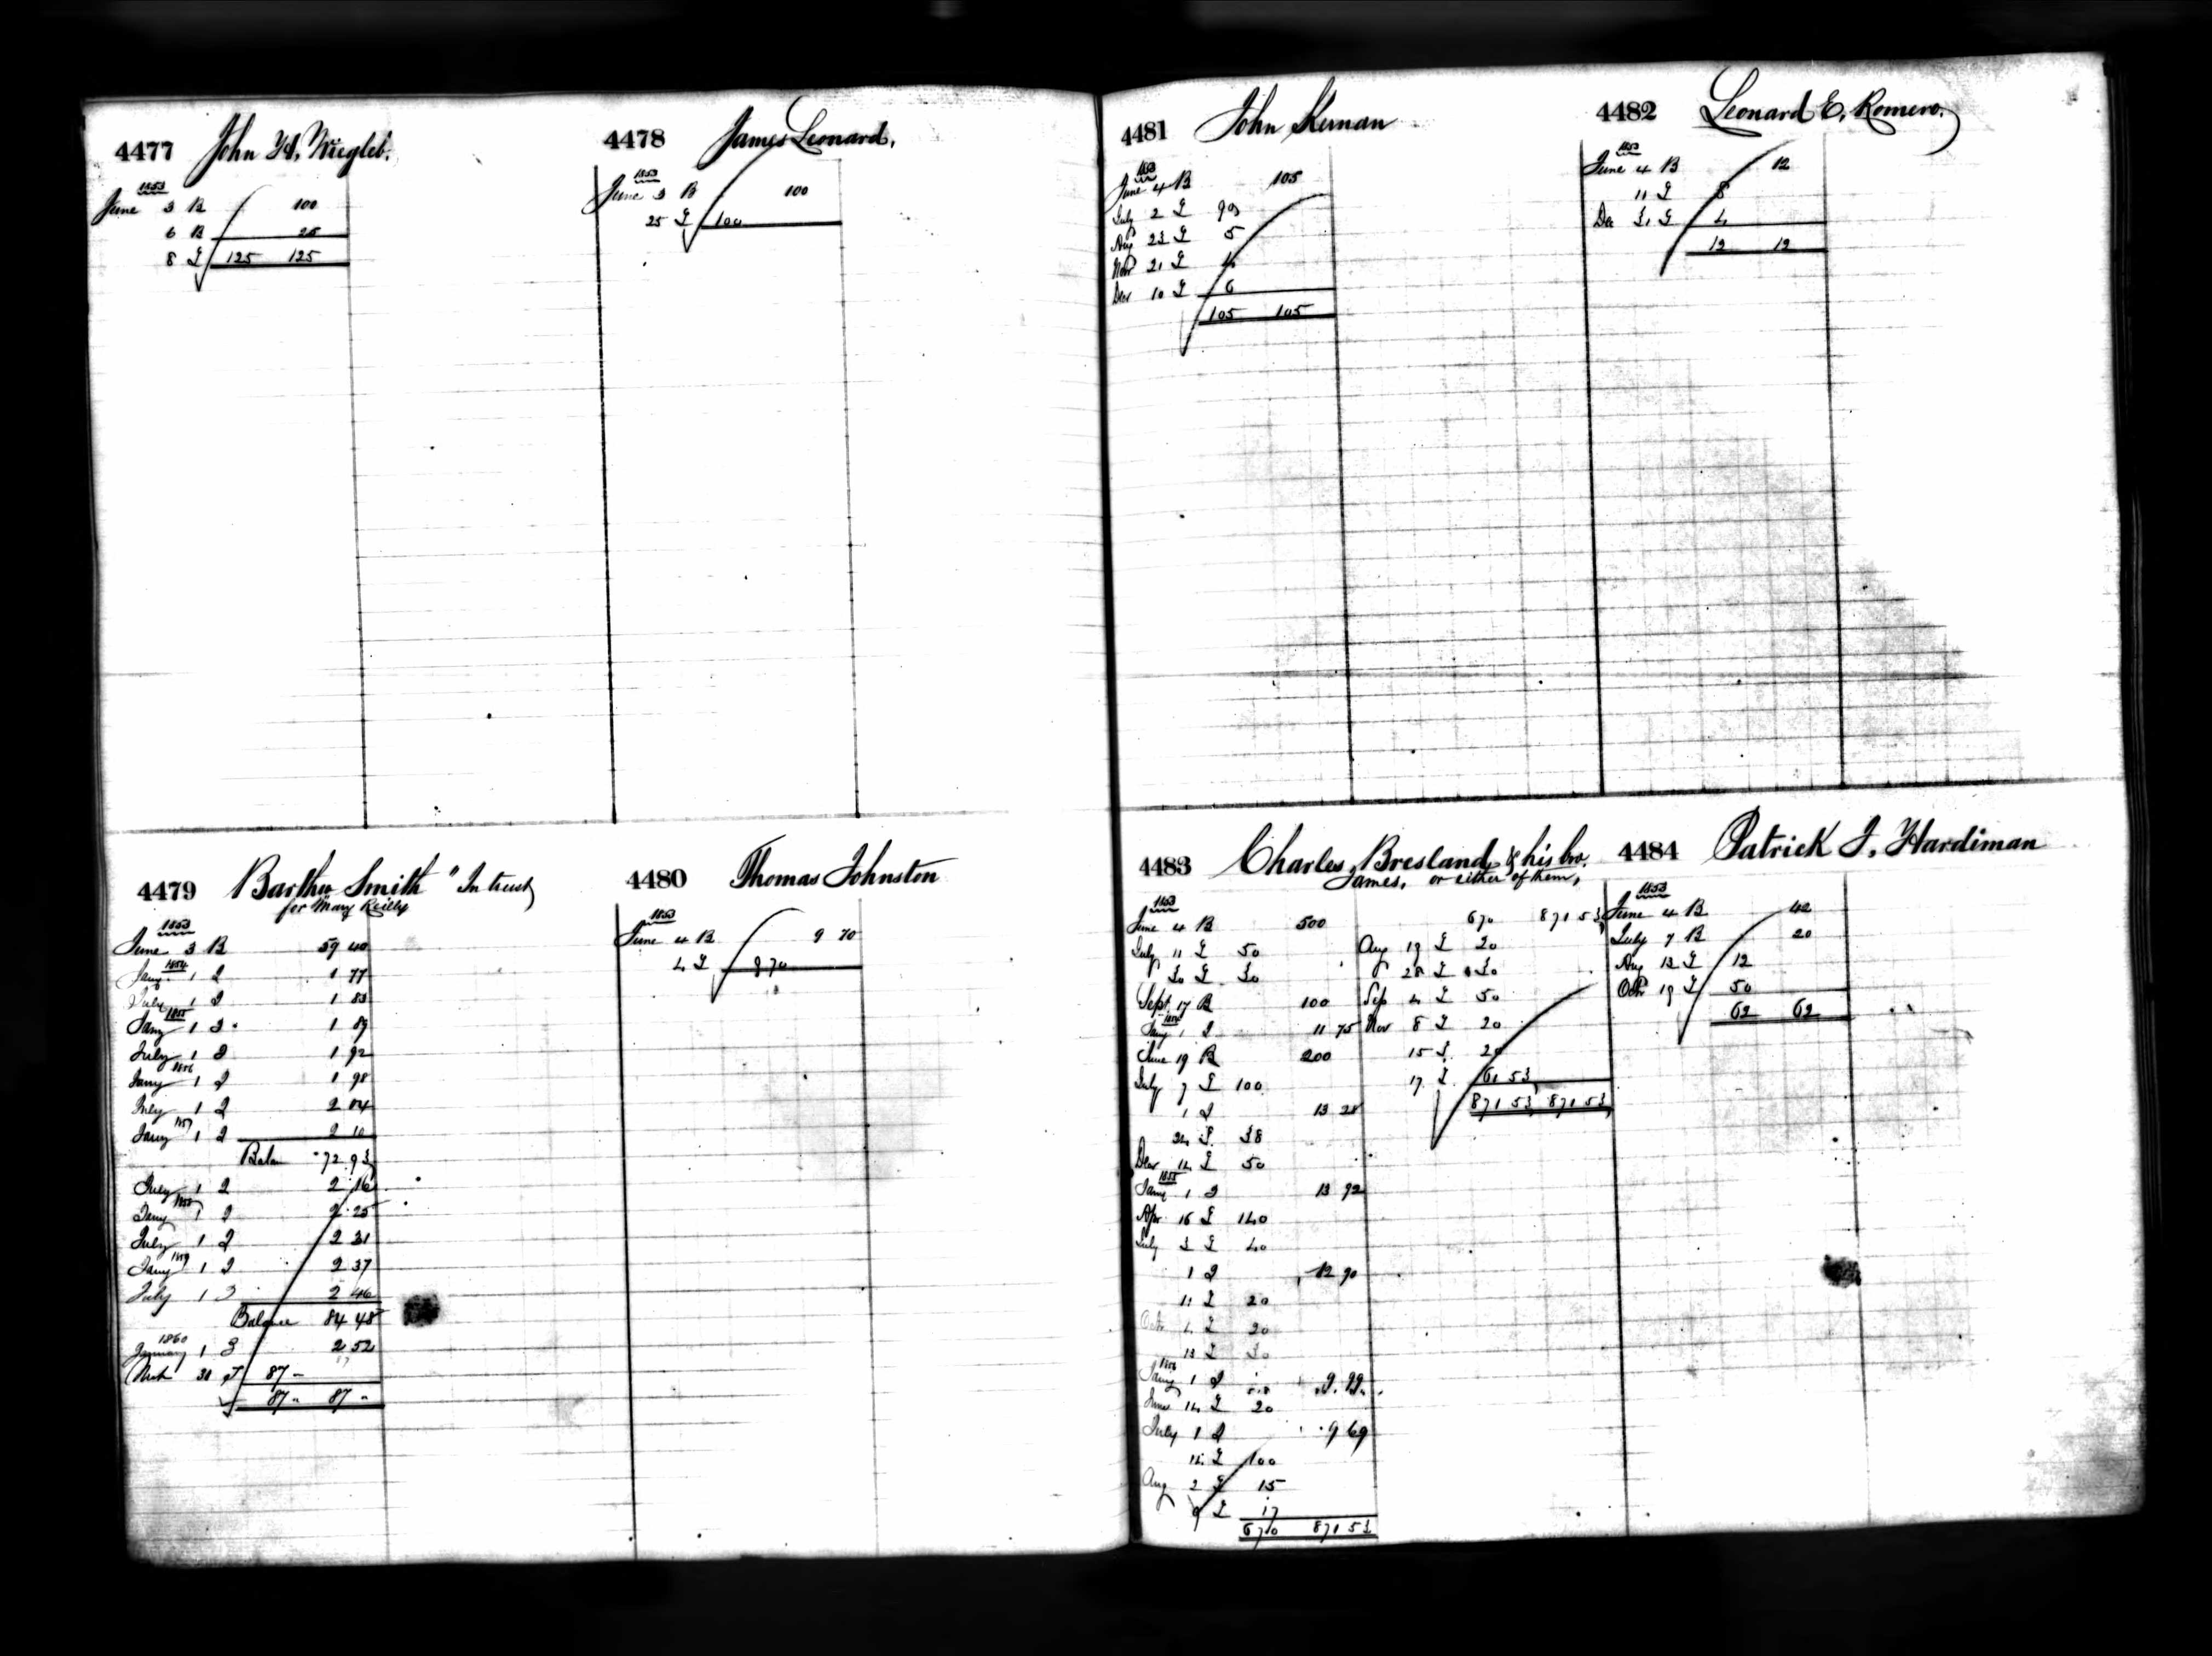 4477 John H. Niegleb.
1853
June 3 B 100
6 B 25
8 L 125 125
4478 James Leonard.
1853
June 3 B 100
25 L 100
4479 Barthw Smith "In trust
for Mary Reilly
1853
June 3 B 59 40
1854
Jany 1 I 1 77
July 1 I 1 83
1855
Jany 1 I 1 89
July 1 I 1 92
1856
Jany 1 I 1 98
July 1 I 2 04
1857
Jany 1 I 2 10
Balan 72 93
July 1 I 2 16
1858
Jany 1 I 2 25
July 1 I 2 31
1859
Jany 1 I 2 37
July 1 I 2 46
Balance 84 48
1860
January 1 I 2 52
Mch 30 87 -
87 - 87 -
4480 Thomas Johnston
1853
June 4 B 9 70
4 L 9.70
4481 John Kernan
1853
June 4 B 105
July 2 L 90
Aug 23 L 5
Novr 21 L 4
Decr 10 L 6
105 105
4482 Leonard E. Romero.
1853
June 4 B 12
11 L 8
Dec 31 L 4
12 12
4483 Charles Bresland, & his bro.
James, or either of them,
1853
June 4 B 500
July 11 L 50
30 L 30
Sept 17 B 100
1854
Jany 1 I 11 75
June 19 B 200
July 7 L 100
1 I 13 28
24 L 38
Decr 14 L 50
1855
Jany 1 I 13 92
Apr 16 L 140
July 3 L 40
1 I 12 90
11 L 20
Octr 4 L 20
13 L 30
1856
Jany 1 I 9.99
June 14 L 20
July 1 I 9 69
14 L 100
Aug 2 L 15
9 L 17
670 871 53
670 871 53
Aug 19 L 20
28 L 30
Sep 4 L 50
Nov 8 L 20
15 L 20
17 L 61 53
871 53 871 53
4484 Patrick J. Hardiman
1853
June 4 B 42
July 7 B 20
Aug 13 L 12
Octr 19 L 50
62 62